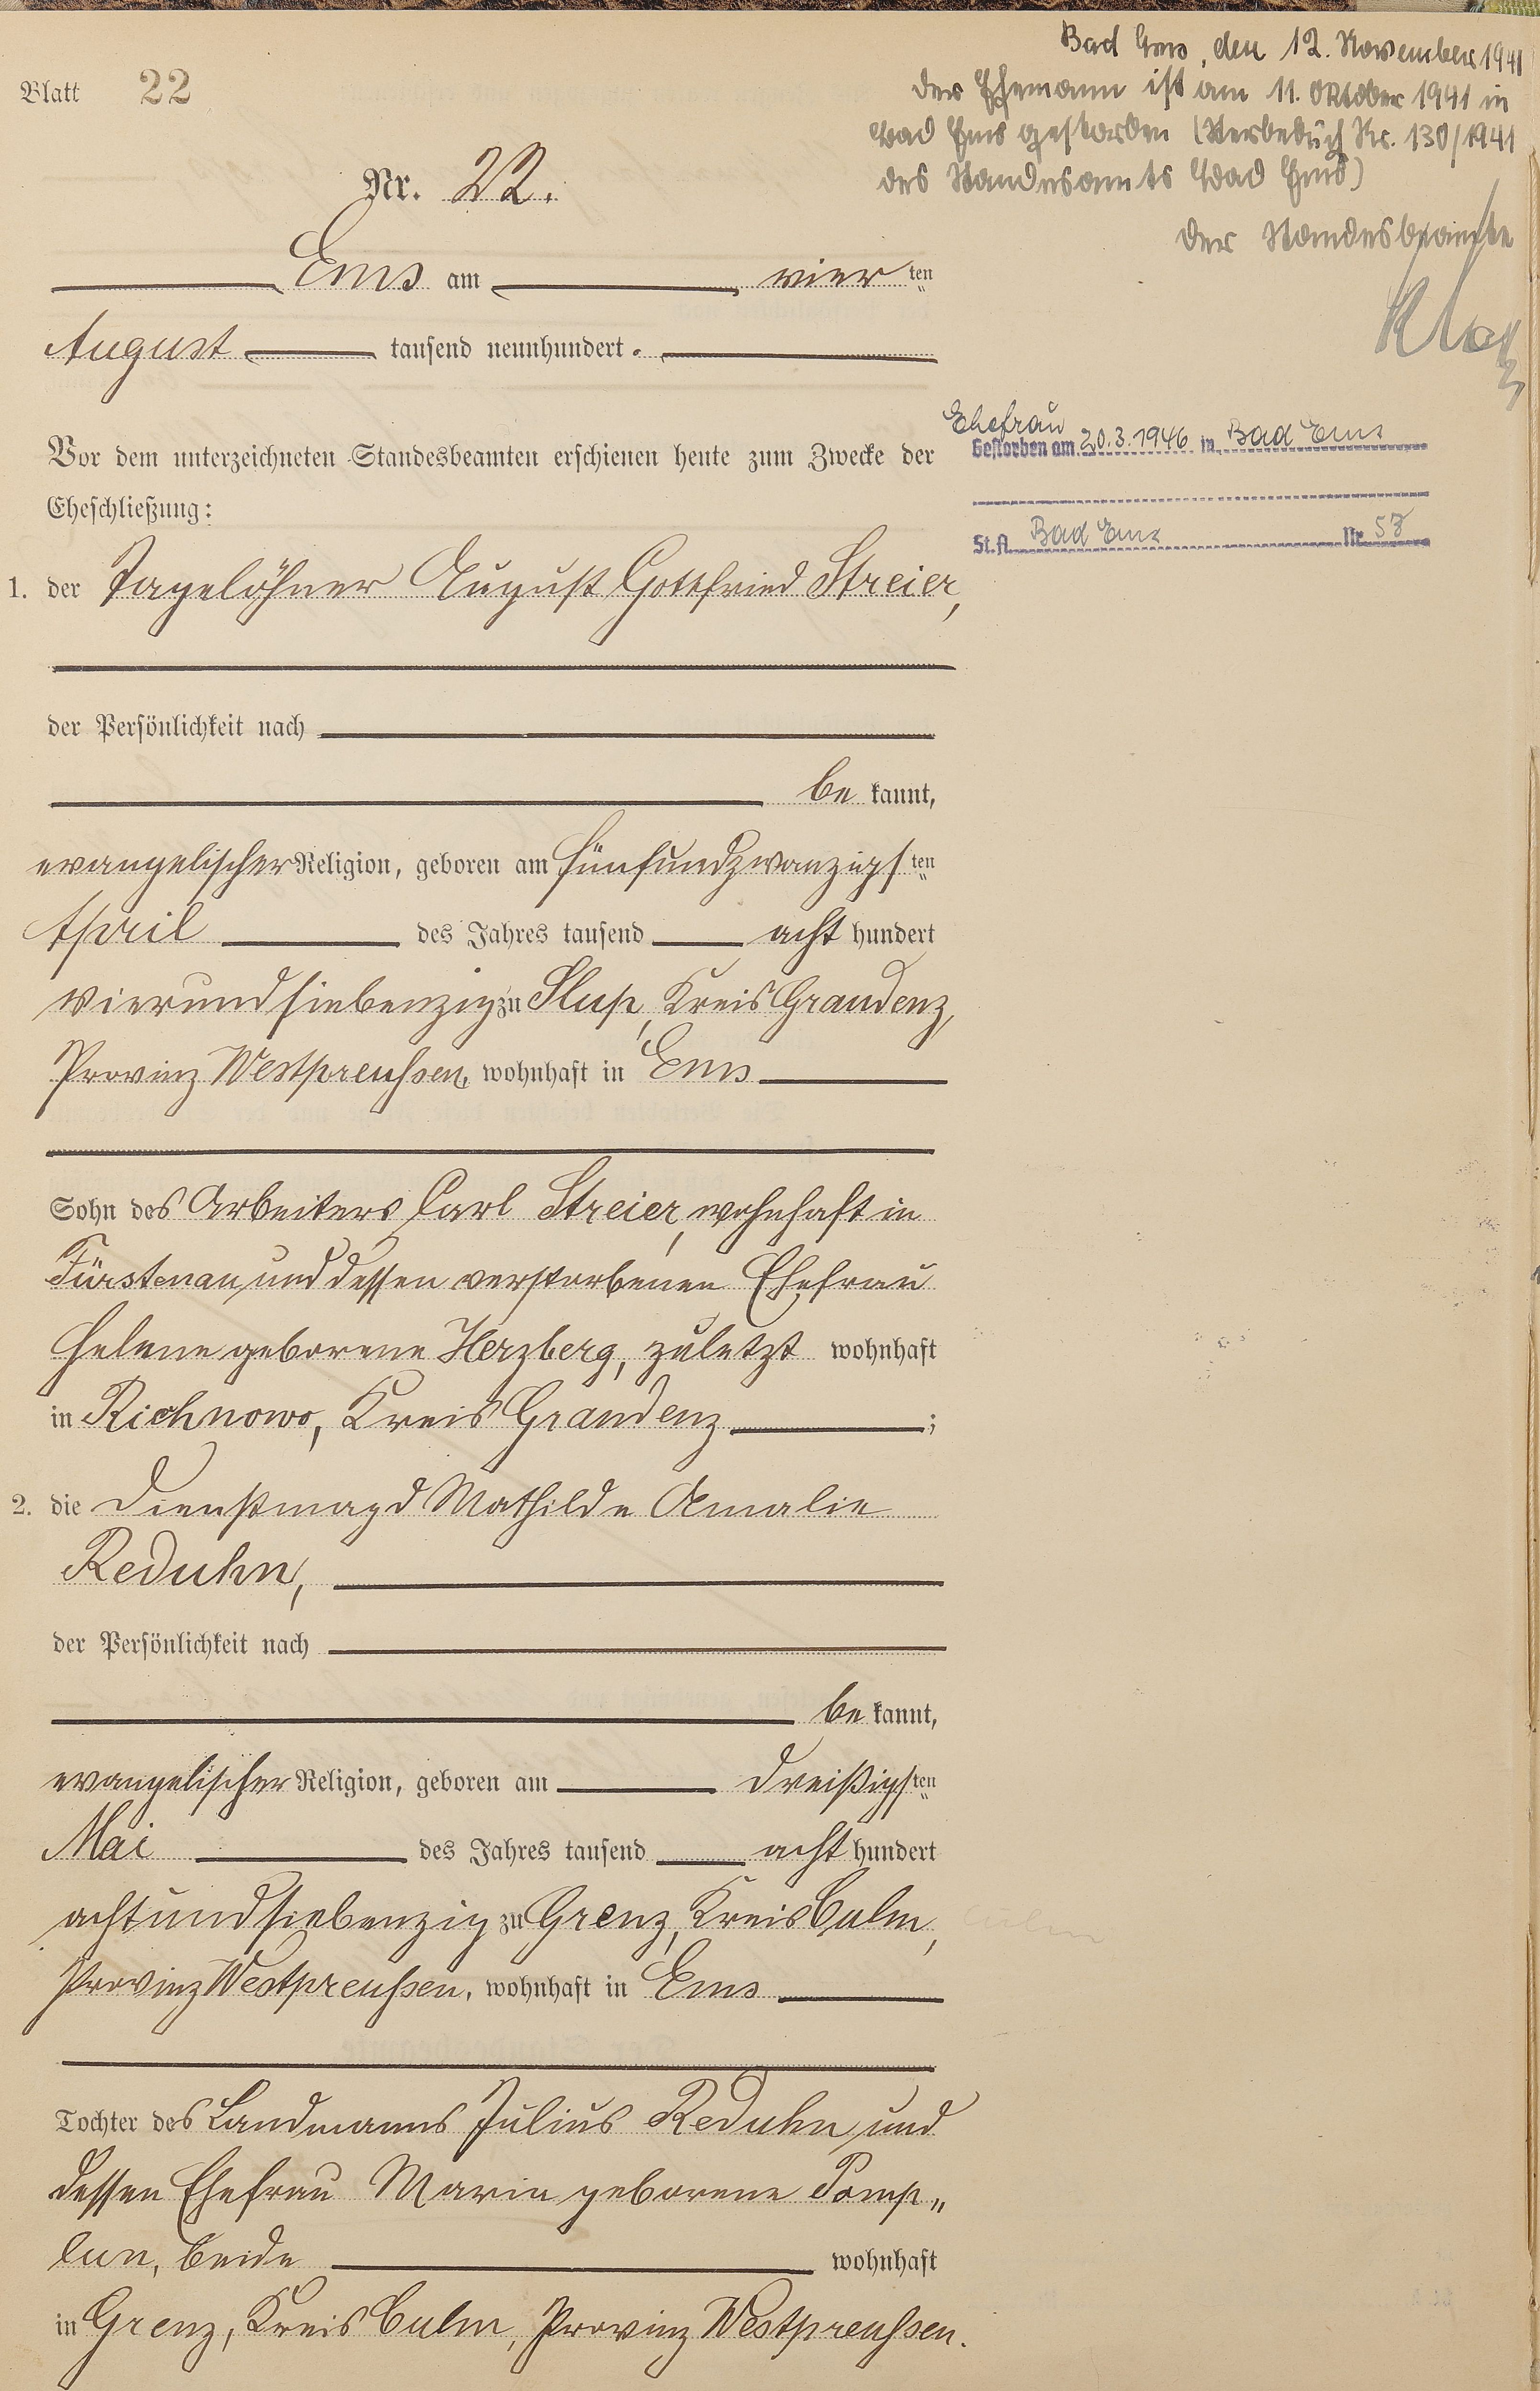 Blatt 22
Nr. 22.
Ems am vierten
August tausend neunhundert.
Vor dem unterzeichneten Standesbeamten erschienen heute zum Zwecke der
Eheschließung:
1. der Tagelöhner August Gottfried Streier,
der Persönlichkeit nach
be kannt,
evangelischer Religion, geboren am fünfundzwanzigsten
April des Jahres tausend acht hundert
vierundsiebenzig zu Slup, Kreis Graudenz,
Provinz Westpreußen, wohnhaft in Ems
Sohn des Arbeiters Carl Streier, wohnhaft in
Fürstenau, und dessen verstorbenen Ehefrau
Helene geborene Herzberg, zuletzt wohnhaft
in Richnowo, Kreis Graudenz;
2. die Dienstmagd Mathilde Amalie
Reduhn,
der Persönlichkeit nach
be kannt,
evangelischer Religion, geboren am dreißigsten
Mai des Jahres tausend acht hundert
achtundsiebenzig zu Grenz, Kreis Culm,
Provinz Westpreußen, wohnhaft in Ems
Tochter des Landmanns Julius Reduhn und
dessen Ehefrau Maria geborene Pomp„
lun, beide wohnhaft
in Grenz, Kreis Culm, Provinz Westpreußen.
Bad Ems, den 12. November 1941
Der Ehemann ist am 11. Oktober 1941 in
Bad Ems gestorben (Sterbebuch Nr. 130/1941
des Standesamts Bad Ems)
Der Standesbeamte
Ehefrau
Gestorben am 20.3.1946 in Bad Ems
St.A. Bad Ems Nr. 58